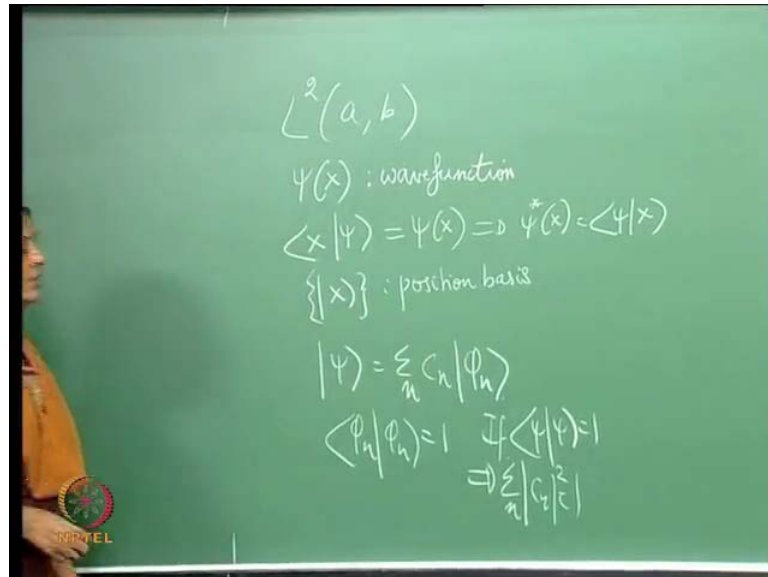 L²(a, b)
ψ(x) : wavefunction
<x|ψ> = ψ(x) => ψ*(x) = <ψ|x>
{|x>} : position basis
|ψ> = Σₙ Cₙ|φₙ>
<φₙ|φₙ> = 1 If <ψ|ψ> = 1
=> Σₙ |Cₙ|² = 1
NPTEL